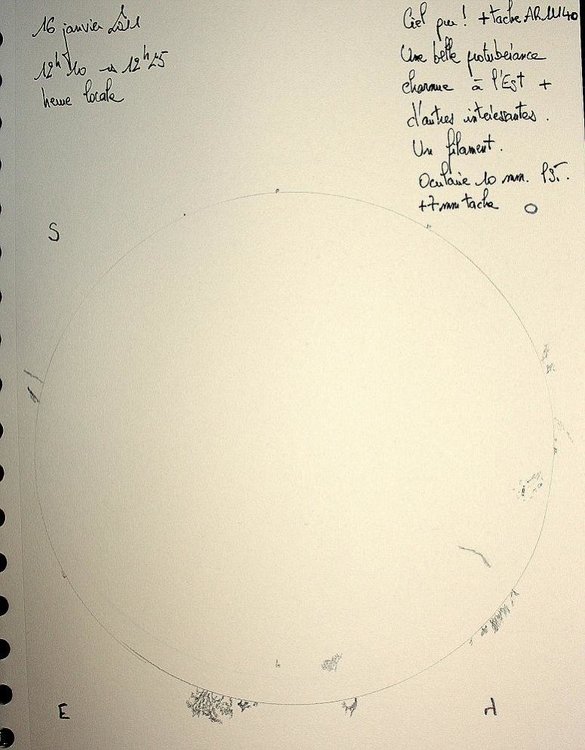 16 janvier 2011
12h10 → 12h25
heure locale
Ciel pur ! + tache AR 11140
Une belle protubérance
charnue à l'Est +
d'autres intéressantes.
Un filament.
Oculaire 10 mm. P3T.
+7 mm tache
S
E